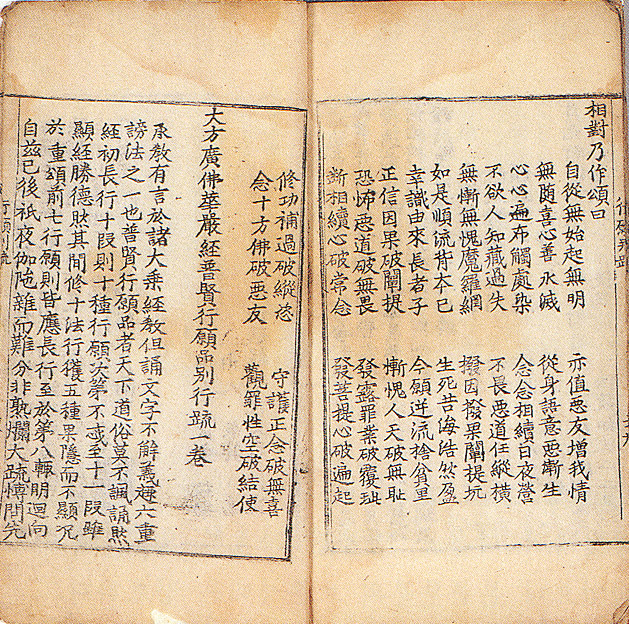 相對乃作頌曰
自從無始起無明　亦值惡友增我情
無随喜心善水滅　從身語意惡漸生
心心遍布觸處染　念念相續日夜營
不欲人知藏過失　不長惡道任縱橫
無慚無愧魔羅網　撥因撥果闡提坑
如是順流背本已　生死苦海浩然盈
幸識由來長者子　今願逆流捨貧里
正信因果破闡提　慚愧人天破無耻
恐怖惡道破無畏　發露罪業破覆玼
斷相續心破常念　發菩提心破遍起
修功補過破縱恣　守護正念破無喜
念十方佛破惡友　觀罪性空破結使
大方廣佛華嚴經普賢行願品別行䟽一卷
承教有言於諸大乘經教但誦文字不解義趣六重
謗法之一也普賢行願品者天下道俗莫不諷誦然
經初長行十段則十種行願次第不惑至十一段雖
顯經勝德然其間修十法行獲五種果隱而不顯况
於重頌前七行願則皆應長行至於第八輙明迴向
自茲已後祇夜伽陁雜而難分非熟爛大䟽博閑先